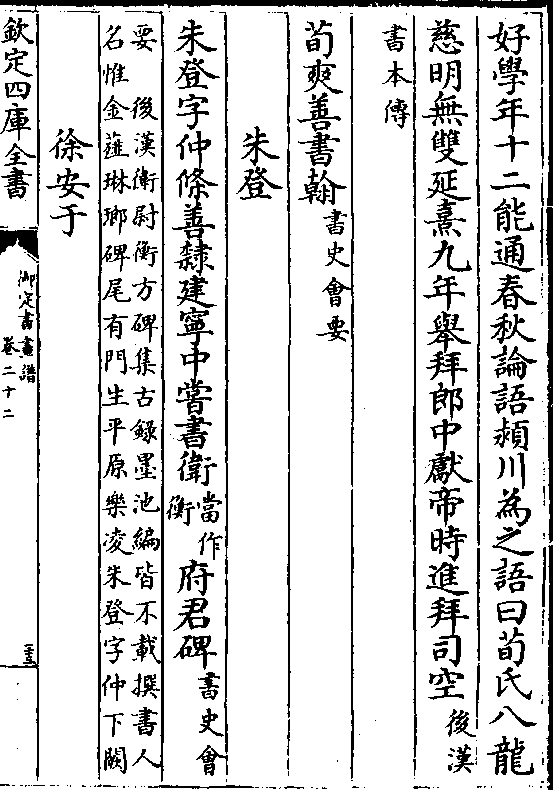 好學年十二能通春秋論語潁川為之語曰荀氏八龍
慈明無雙延熹九年舉拜郎中獻帝時進拜司空後漢
書本傳
荀爽善書翰書史會要
朱登
朱登字仲條善隸建寧中嘗書衛當作衡府君碑書史會
要　後漢衛尉衡方碑集古錄墨池編皆不載撰書人
名惟金薤琳瑯碑尾有門生平原樂凌朱登字仲下闕
徐安于
欽定四庫全書
御定書畫譜
卷二十二